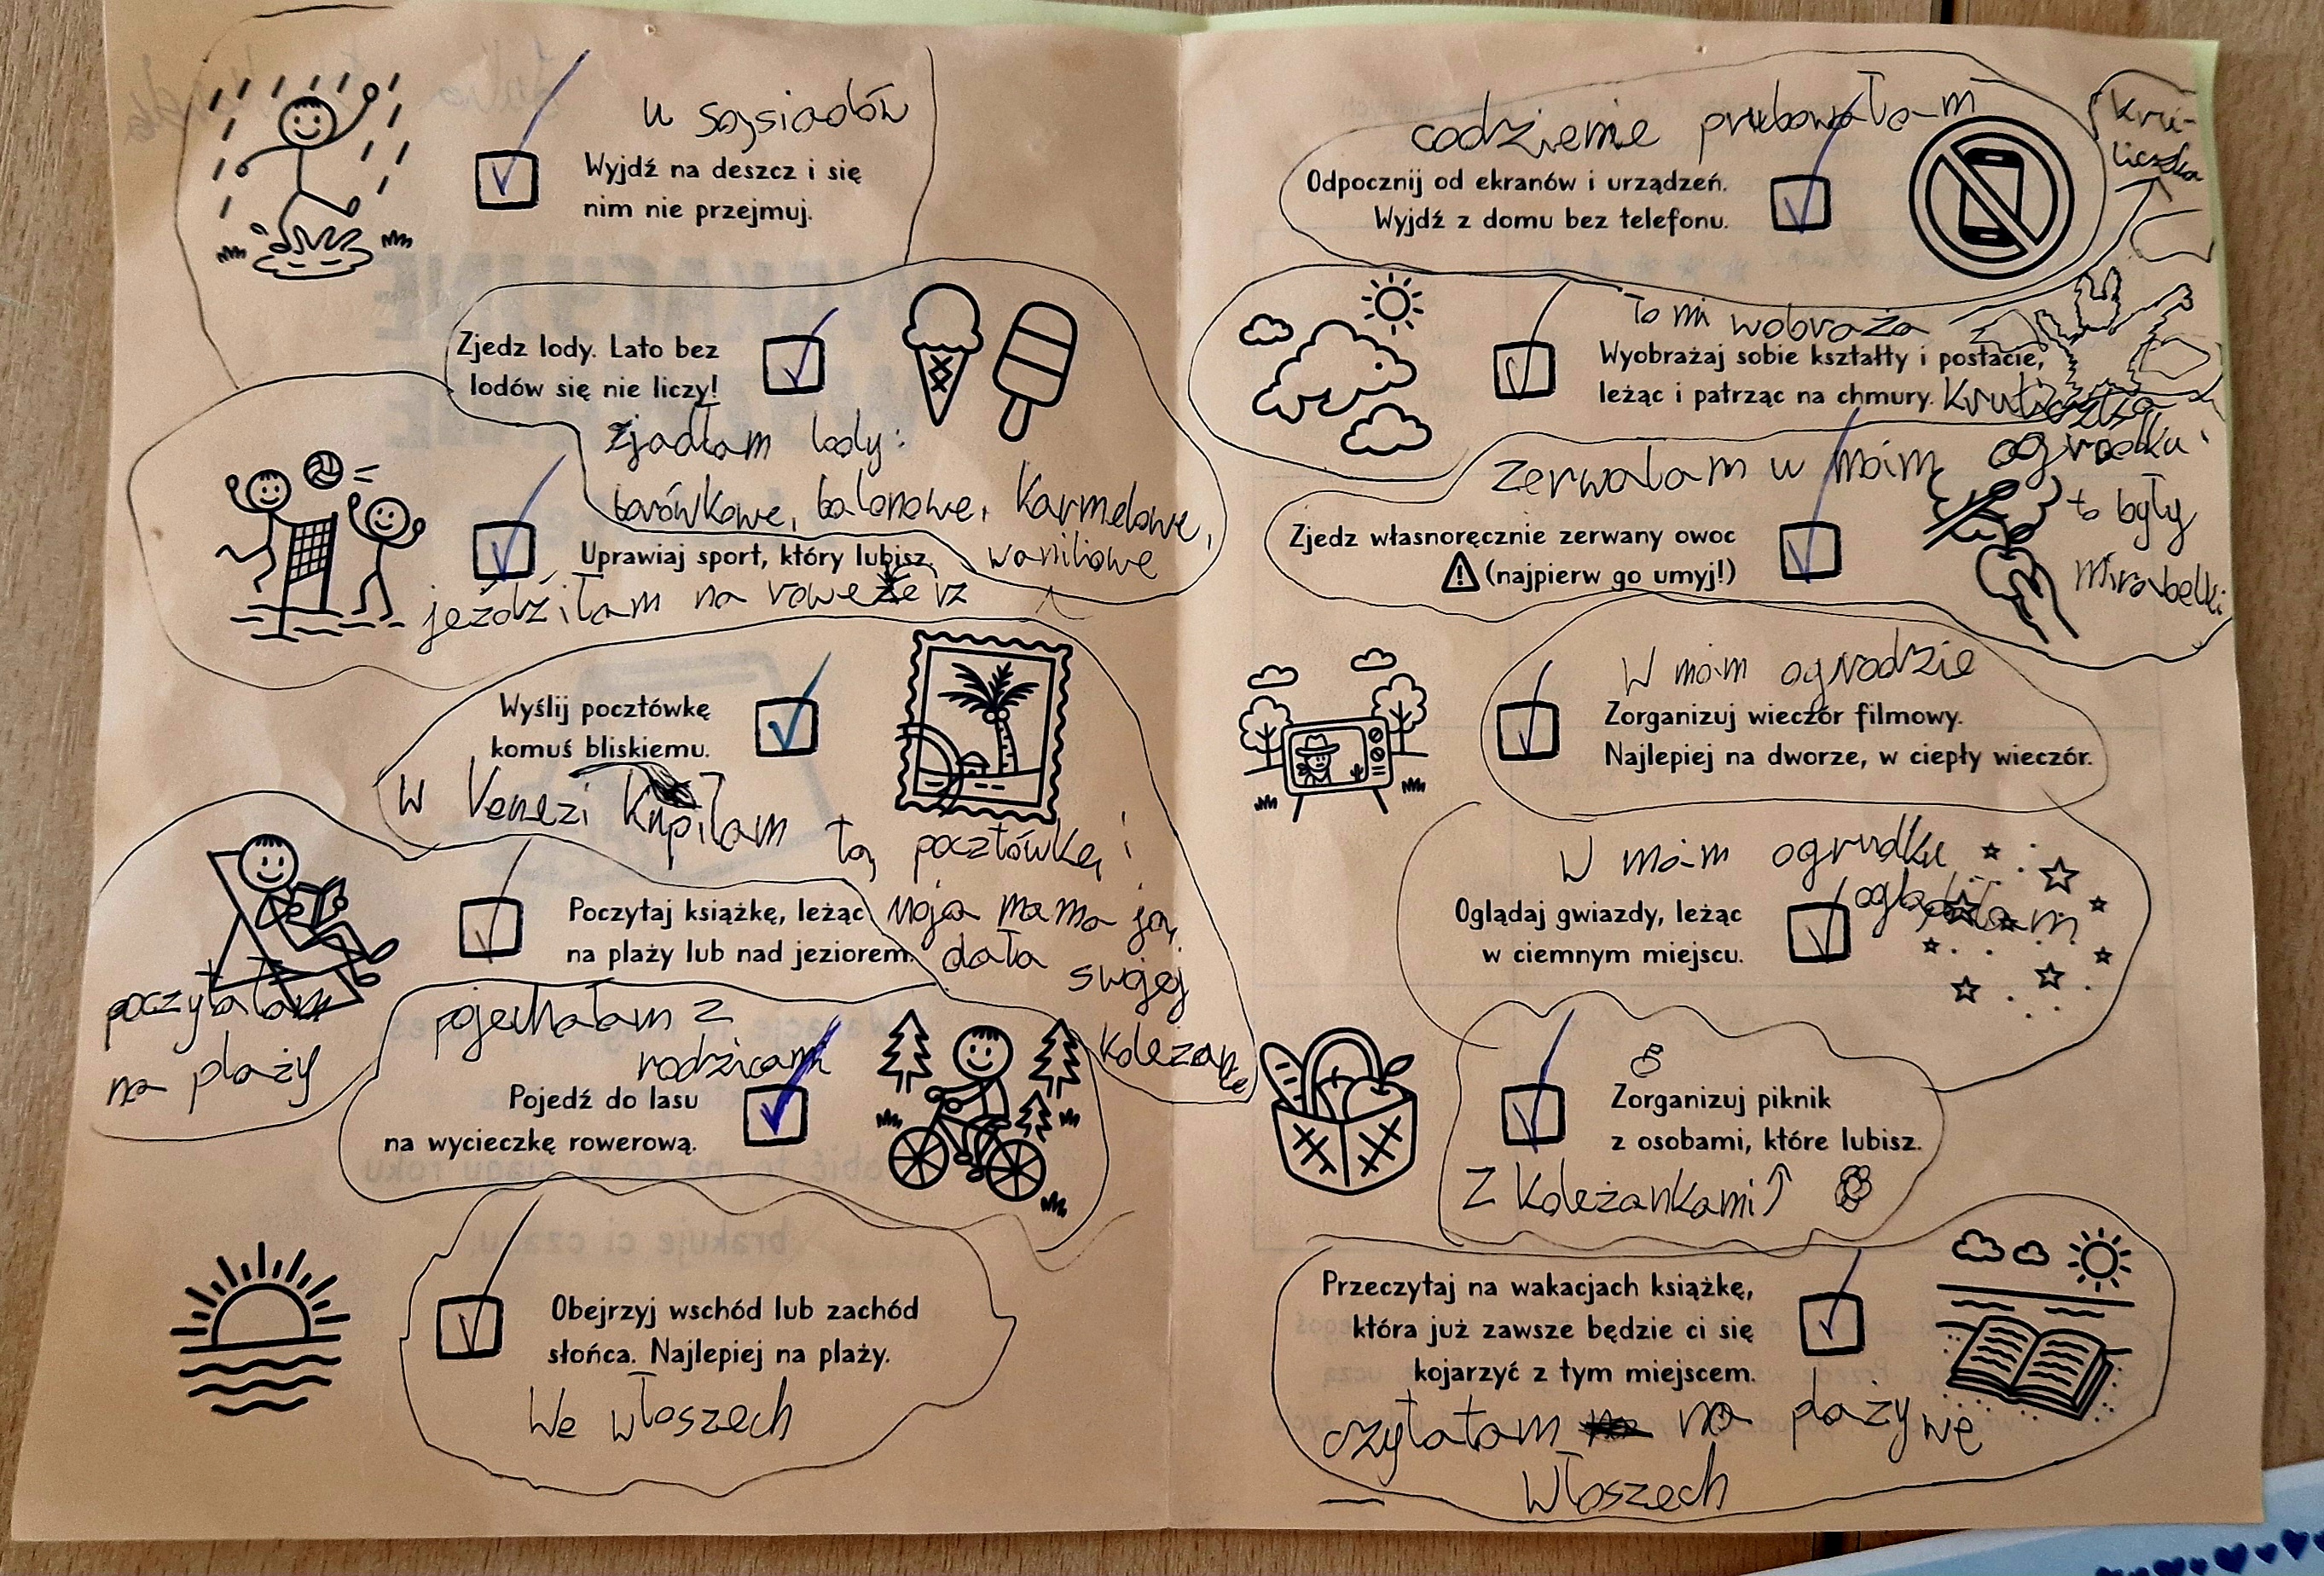 u sąsiadów
Wyjdź na deszcz i się
nim nie przejmuj.
Zjedz lody. Lato bez
lodów się nie liczy!
zjadłam lody:
borówkowe, balonowe, karmelowe,
waniliowe
Uprawiaj sport, który lubisz.
jeździłam na rowerze
Wyślij pocztówkę
komuś bliskiemu.
w Venezi kupiłam tą pocztówkę i
moja mama ją
dała swojej
koleżance
Poczytaj książkę, leżąc
na plaży lub nad jeziorem.
poczytałam
na plaży
pojechałam z
rodzicami
Pojedź do lasu
na wycieczkę rowerową.
Obejrzyj wschód lub zachód
słońca. Najlepiej na plaży.
We włoszech
codzienie prubowałam
Odpocznij od ekranów i urządzeń.
Wyjdź z domu bez telefonu.
kru-
liczka
To mi wobraża
Wyobrażaj sobie kształty i postacie,
leżąc i patrząc na chmury.
zerwałam w moim ogrodku
to były
mirabelki
Zjedz własnoręcznie zerwany owoc
(najpierw go umyj!)
W moim ogrodzie
Zorganizuj wieczór filmowy.
Najlepiej na dworze, w ciepły wieczór.
W moim ogrudku
oglądałam
Oglądaj gwiazdy, leżąc
w ciemnym miejscu.
Zorganizuj piknik
z osobami, które lubisz.
Z koleżankami
Przeczytaj na wakacjach książkę,
która już zawsze będzie ci się
kojarzyć z tym miejscem.
czytałam na plaży we
Włoszech